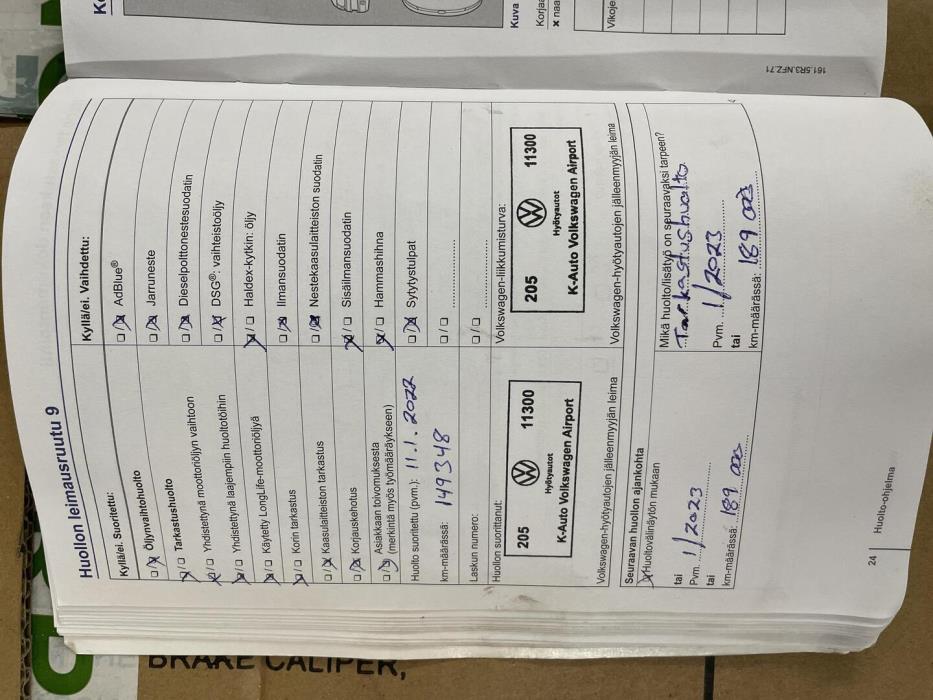 Huollon leimausruutu 9
Kyllä/ei. Suoritettu:
☐/☒ Öljynvaihtohuolto
☒/☐ Tarkastushuolto
☒/☐ Yhdistettynä moottoriöljyn vaihtoon
☒/☐ Yhdistettynä laajempiin huoltotöihin
☒/☐ Käytetty LongLife-moottoriöljyä
☒/☐ Korin tarkastus
☐/☒ Kaasulaitteiston tarkastus
☐/☒ Korjauskehotus
☐/☒ Asiakkaan toivomuksesta
(merkintä myös työmääräykseen)
Huolto suoritettu (pvm.): 11.1.2022
km-määrässä: 149348
Laskun numero:
Huollon suorittanut:
205 11300
Hyötyautot
K-Auto Volkswagen Airport
Volkswagen-hyötyautojen jälleenmyyjän leima
Kyllä/ei. Vaihdettu:
☐/☒ AdBlue®
☐/☒ Jarruneste
☐/☒ Dieselpolttonestesuodatin
☐/☒ DSG®: vaihteistoöljy
☒/☐ Haldex-kytkin: öljy
☐/☒ Ilmansuodatin
☐/☒ Nestekaasulaitteiston suodatin
☒/☐ Sisäilmansuodatin
☒/☐ Hammashihna
☐/☒ Sytytystulpat
☐/☐
☐/☐
Volkswagen-liikkumisturva:
205 11300
Hyötyautot
K-Auto Volkswagen Airport
Volkswagen-hyötyautojen jälleenmyyjän leima
Seuraavan huollon ajankohta
☒ Huoltovälinäytön mukaan
tai
Pvm. 1/2023
tai
km-määrässä: 189 000
Mikä huolto/lisätyö on seuraavaksi tarpeen?
Tarkastushuolto
Pvm. 1/2023
tai
km-määrässä: 189 000
24
Huolto-ohjelma
Kuva
Korjaa
x naa
Vikoje
161.5R3.NFZ.71
BRAKE CALIPER,